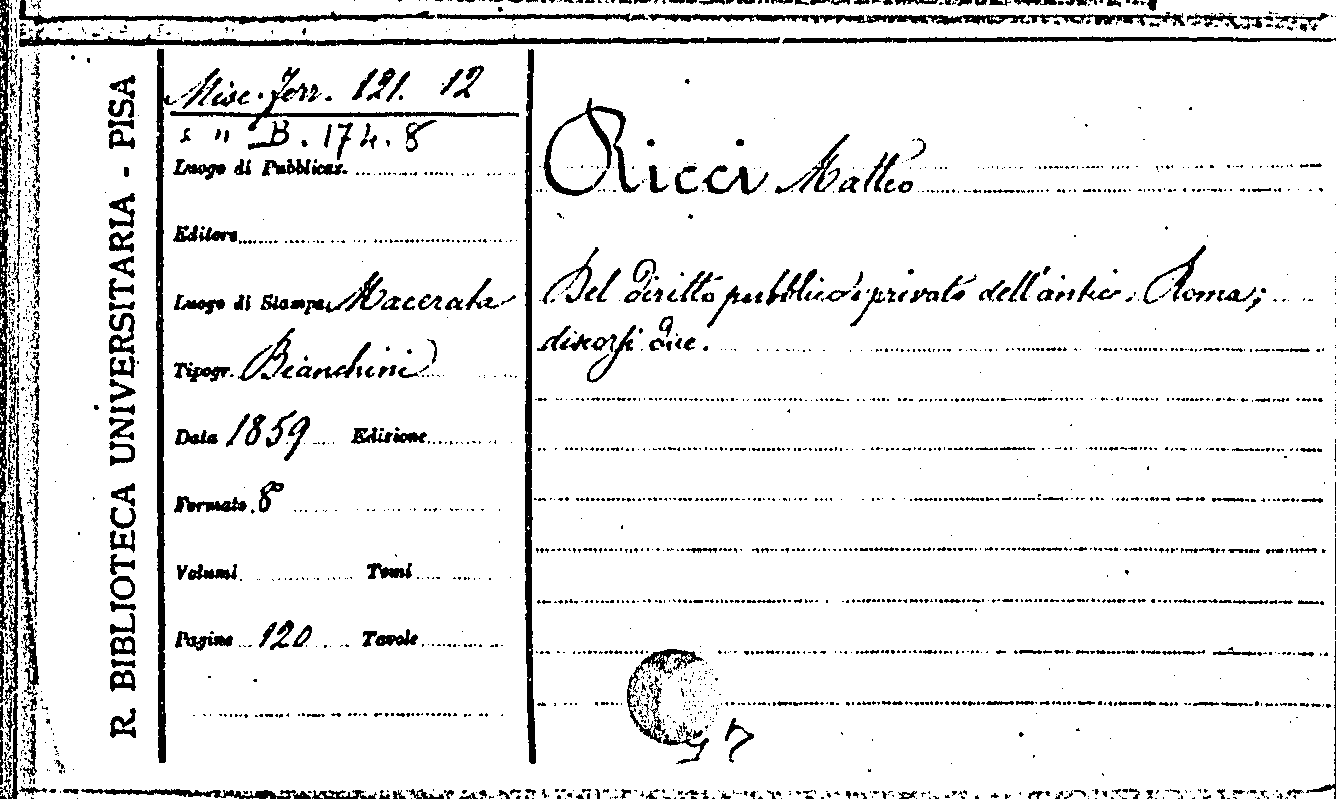 R. BIBLIOTECA UNIVERSITARIA - PISA
Misc. Ferr. 121. 12
" B. 174. 8
Luogo di Pubblicaz.
Editore
Luogo di Stampa Macerata
Tipogr. Bianchini
Data 1859 Edizione
Formato 8°
Volumi Tomi
Pagine 120 Tavole
Ricci Matteo
Del diritto pubblico e privato dell'antica Roma;
discorsi due.